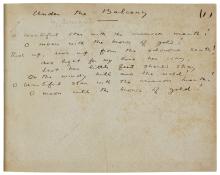 Under the Balcony
O beautiful star with the crimson mouth!
O moon with the brows of gold!
Rise up, rise up, from the odorous south!
And light for my love her way,
Lest her little feet should stray
On the windy hill and the wold!
O beautiful star with the crimson mouth!
O moon with the brows of gold!